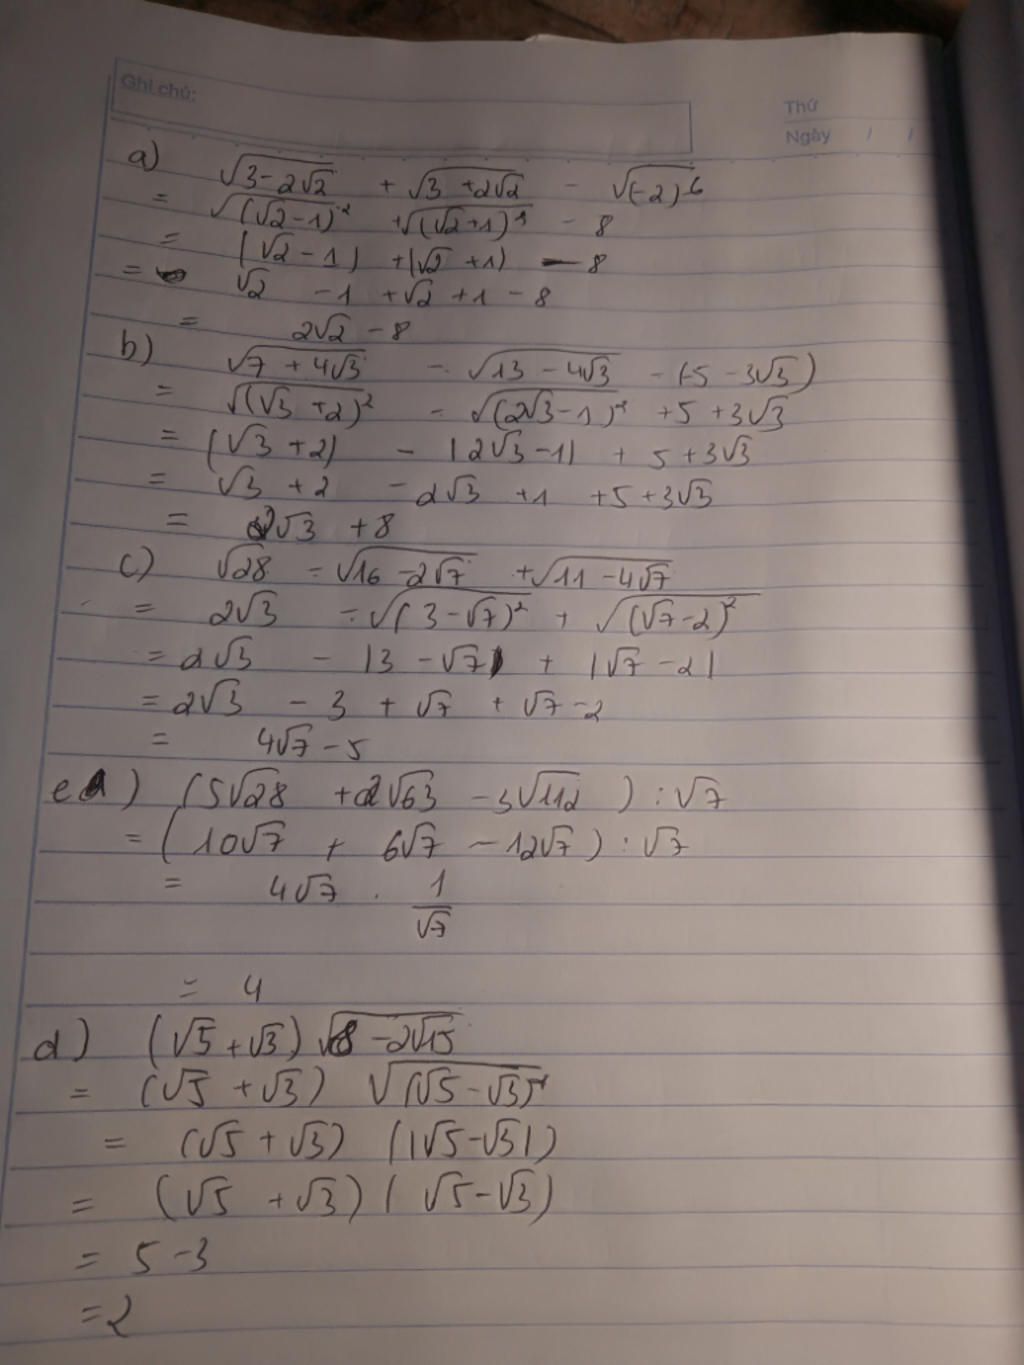 Ghi chú:
Thứ
Ngày / /
a) √(3-2√2) + √(3+2√2) - √((-2)^6)
= √((√2-1)²) + √((√2+1)²) - 8
= |√2-1| + |√2+1| - 8
= √2 - 1 + √2 + 1 - 8
= 2√2 - 8
b) √(7+4√3) - √(13-4√3) - (-5-3√3)
= √((√3+2)²) - √((2√3-1)²) + 5 + 3√3
= |√3+2| - |2√3-1| + 5 + 3√3
= √3 + 2 - 2√3 + 1 + 5 + 3√3
= 2√3 + 8
c) √28 - √(16-2√7) + √(11-4√7)
= 2√3 - √((3-√7)²) + √((√7-2)²)
= 2√3 - |3-√7| + |√7-2|
= 2√3 - 3 + √7 + √7 - 2
= 4√7 - 5
e) (5√28 + 2√63 - 3√112) : √7
= (10√7 + 6√7 - 12√7) : √7
= 4√7 . 1/√7
= 4
d) (√5+√3) √(8-2√15)
= (√5+√3) √((√5-√3)²)
= (√5+√3) (|√5-√3|)
= (√5+√3) (√5-√3)
= 5 - 3
= 2